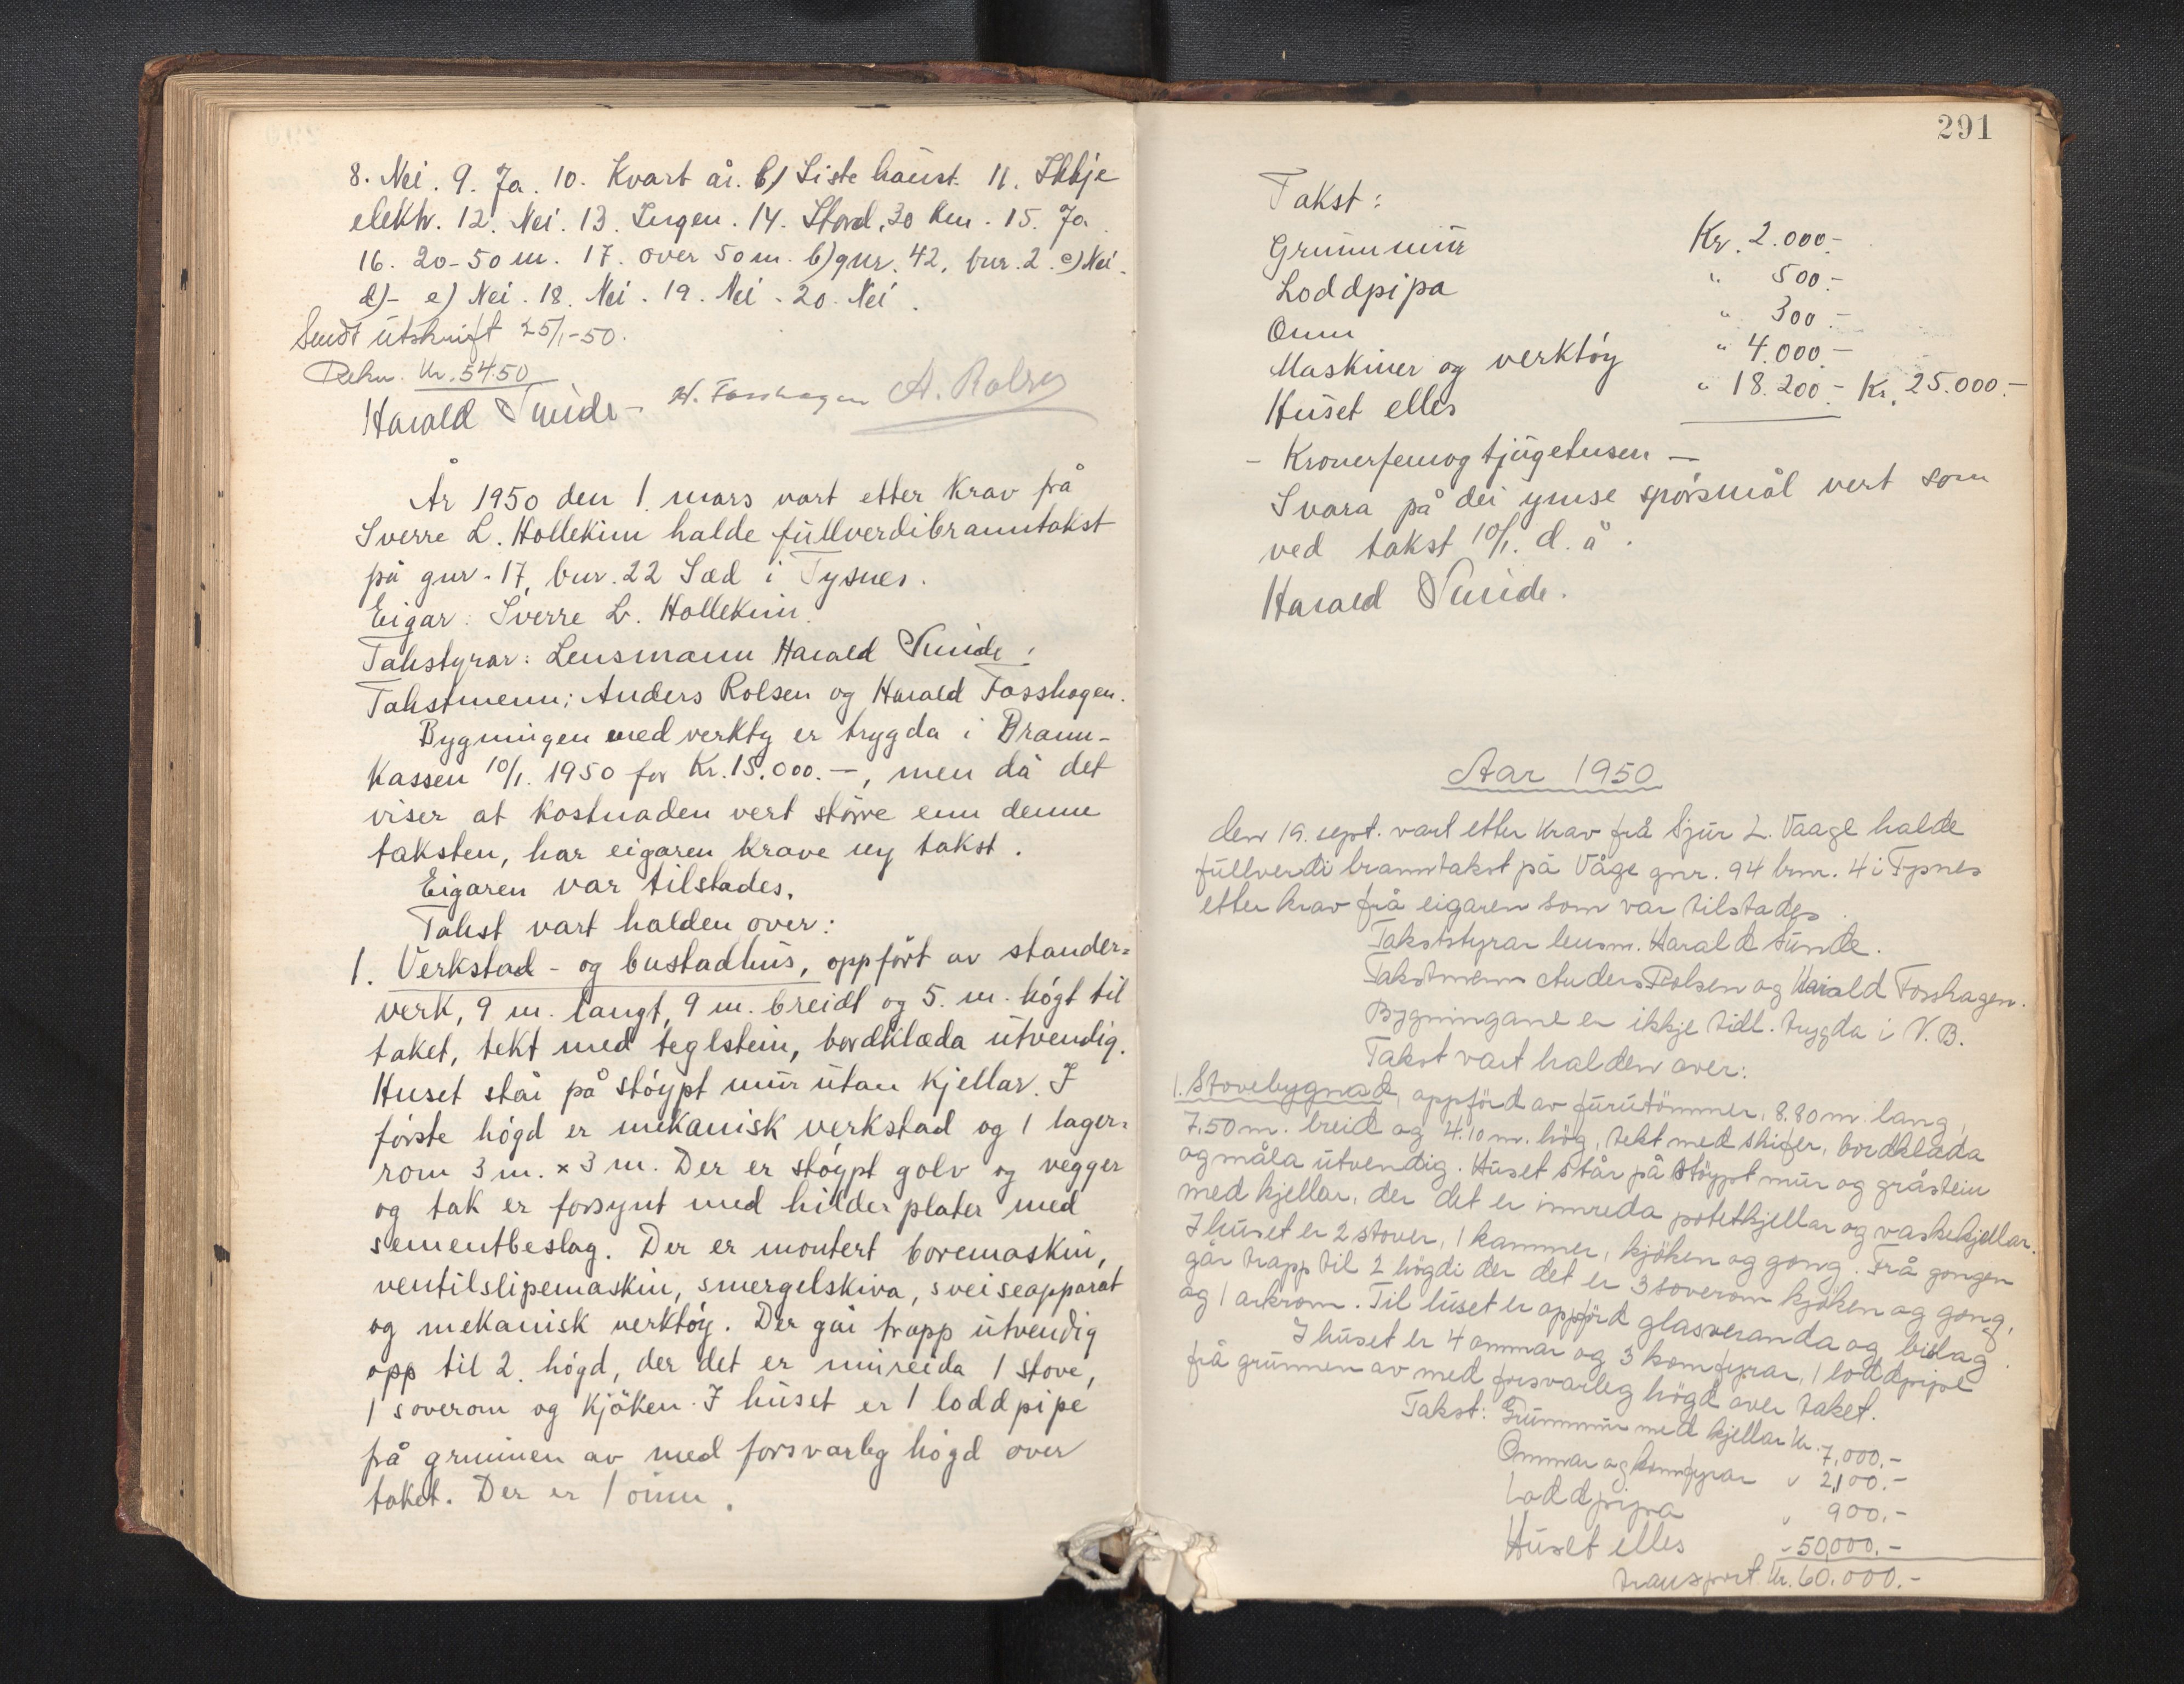 8. Nei. 9. Ja. 10. Kvart år. b) Siste haust. 11. Ikkje
elektr. 12. Nei. 13. Ingen. 14. Stord, 30 km. 15. Ja.
16. 20-50 m. 17. over 50 m. b) gnr. 42, bnr. 2. c) Nei.
d)- e) Nei. 18. Nei. 19. Nei. 20. Nei.
Sendt utskrift 25/1-50.
Rekn. kr. 54.50
Harald Sunde - H. Fosshagen A. Rolsen
År 1950 den 1. mars vart etter krav frå
Sverre L. Hollekim halde fullverdibranntakst
på gnr. 17, bnr. 22 Sæd i Tysnes.
Eigar: Sverre L. Hollekim.
Takstyrar: Lensmann Harald Sunde.
Takstmenn: Anders Rolsen og Harald Fosshagen.
Bygningen med verkty er trygda i Brann-
kassen 10/1. 1950 for kr. 15.000.-, men då det
viser at kostnaden vert större enn denne
taksten, har eigaren krave ny takst.
Eigaren var tilstades.
Takst vart halden over:
1. Verkstad- og bustadhus, oppfört av stander=
verk, 9 m. langt, 9 m. breidt og 5. m. högt til
taket, tekt med teglstein, bordklæda utvendig.
Huset står på stöypt mur utan kjellar. I
förste högd er mekanisk verkstad og 1 lager=
rom 3 m. x 3 m. Der er stöypt golv og vegger
og tak er forsynt med hilder plater med
sementbeslag. Der er montert boremaskin,
ventilslipemaskin, smergelskiva, sveiseapparat
og mekanisk verktöy. Der går trapp utvendig
opp til 2. högd, der det er innreida 1 stove,
1 soverom og kjöken. I huset er 1 loddpipe
frå grunnen av med forsvarleg högd over
taket. Der er 1 omn.
291
Takst:
Grunnmur Kr. 2.000.-
Loddpipa " 500.-
Omn " 300.-
Maskiner og verktöy " 4.000.-
Huset elles " 18.200.- Kr. 25.000.-
- Kronerfemogtjugetusen -
Svara på dei ymse spörsmål vert som
ved takst 10/1. d. å.
Harald Sunde.
Aar 1950
den 19. sept. vart etter krav frå Sjur L. Vaage halde
fullverdi branntakst på Våge gnr. 94 bnr. 4 i Tysnes
etter krav frå eigaren som var tilstades.
Takststyrar lensm. Harald Sunde.
Takstmenn Anders Rolsen og Harald Fosshagen.
Bygningane er ikkje tidl. trygda i N.B.
Takst vart halden over:
1. Stovebygnad, oppförd av furutömmer, 8.80 m. lang,
7,50 m. breid og 4.10 m. hög, tekt med skifer, bordklæda
og måla utvendig. Huset står på stöypt mur og gråstein
med kjellar, der det er innreda potetkjellar og vaskekjellar.
I huset er 2 stover, 1 kammer, kjöken og gong. Frå gongen
går trapp til 2 högdi der det er 3 soverom kjöken og gong,
og 1 arkrom. Til huset er oppförd glasveranda og bislag.
I huset er 4 omnar og 3 komfyrar, 1 loddpipe
frå grunnen av med forsvarleg högd over taket.
Takst: Grunnmur med kjellar kr. 7,000.-
Omnar og komfyrar " 2,100.-
Loddpipa " 900.-
Huset elles " 50,000.-
transport kr. 60,000.-